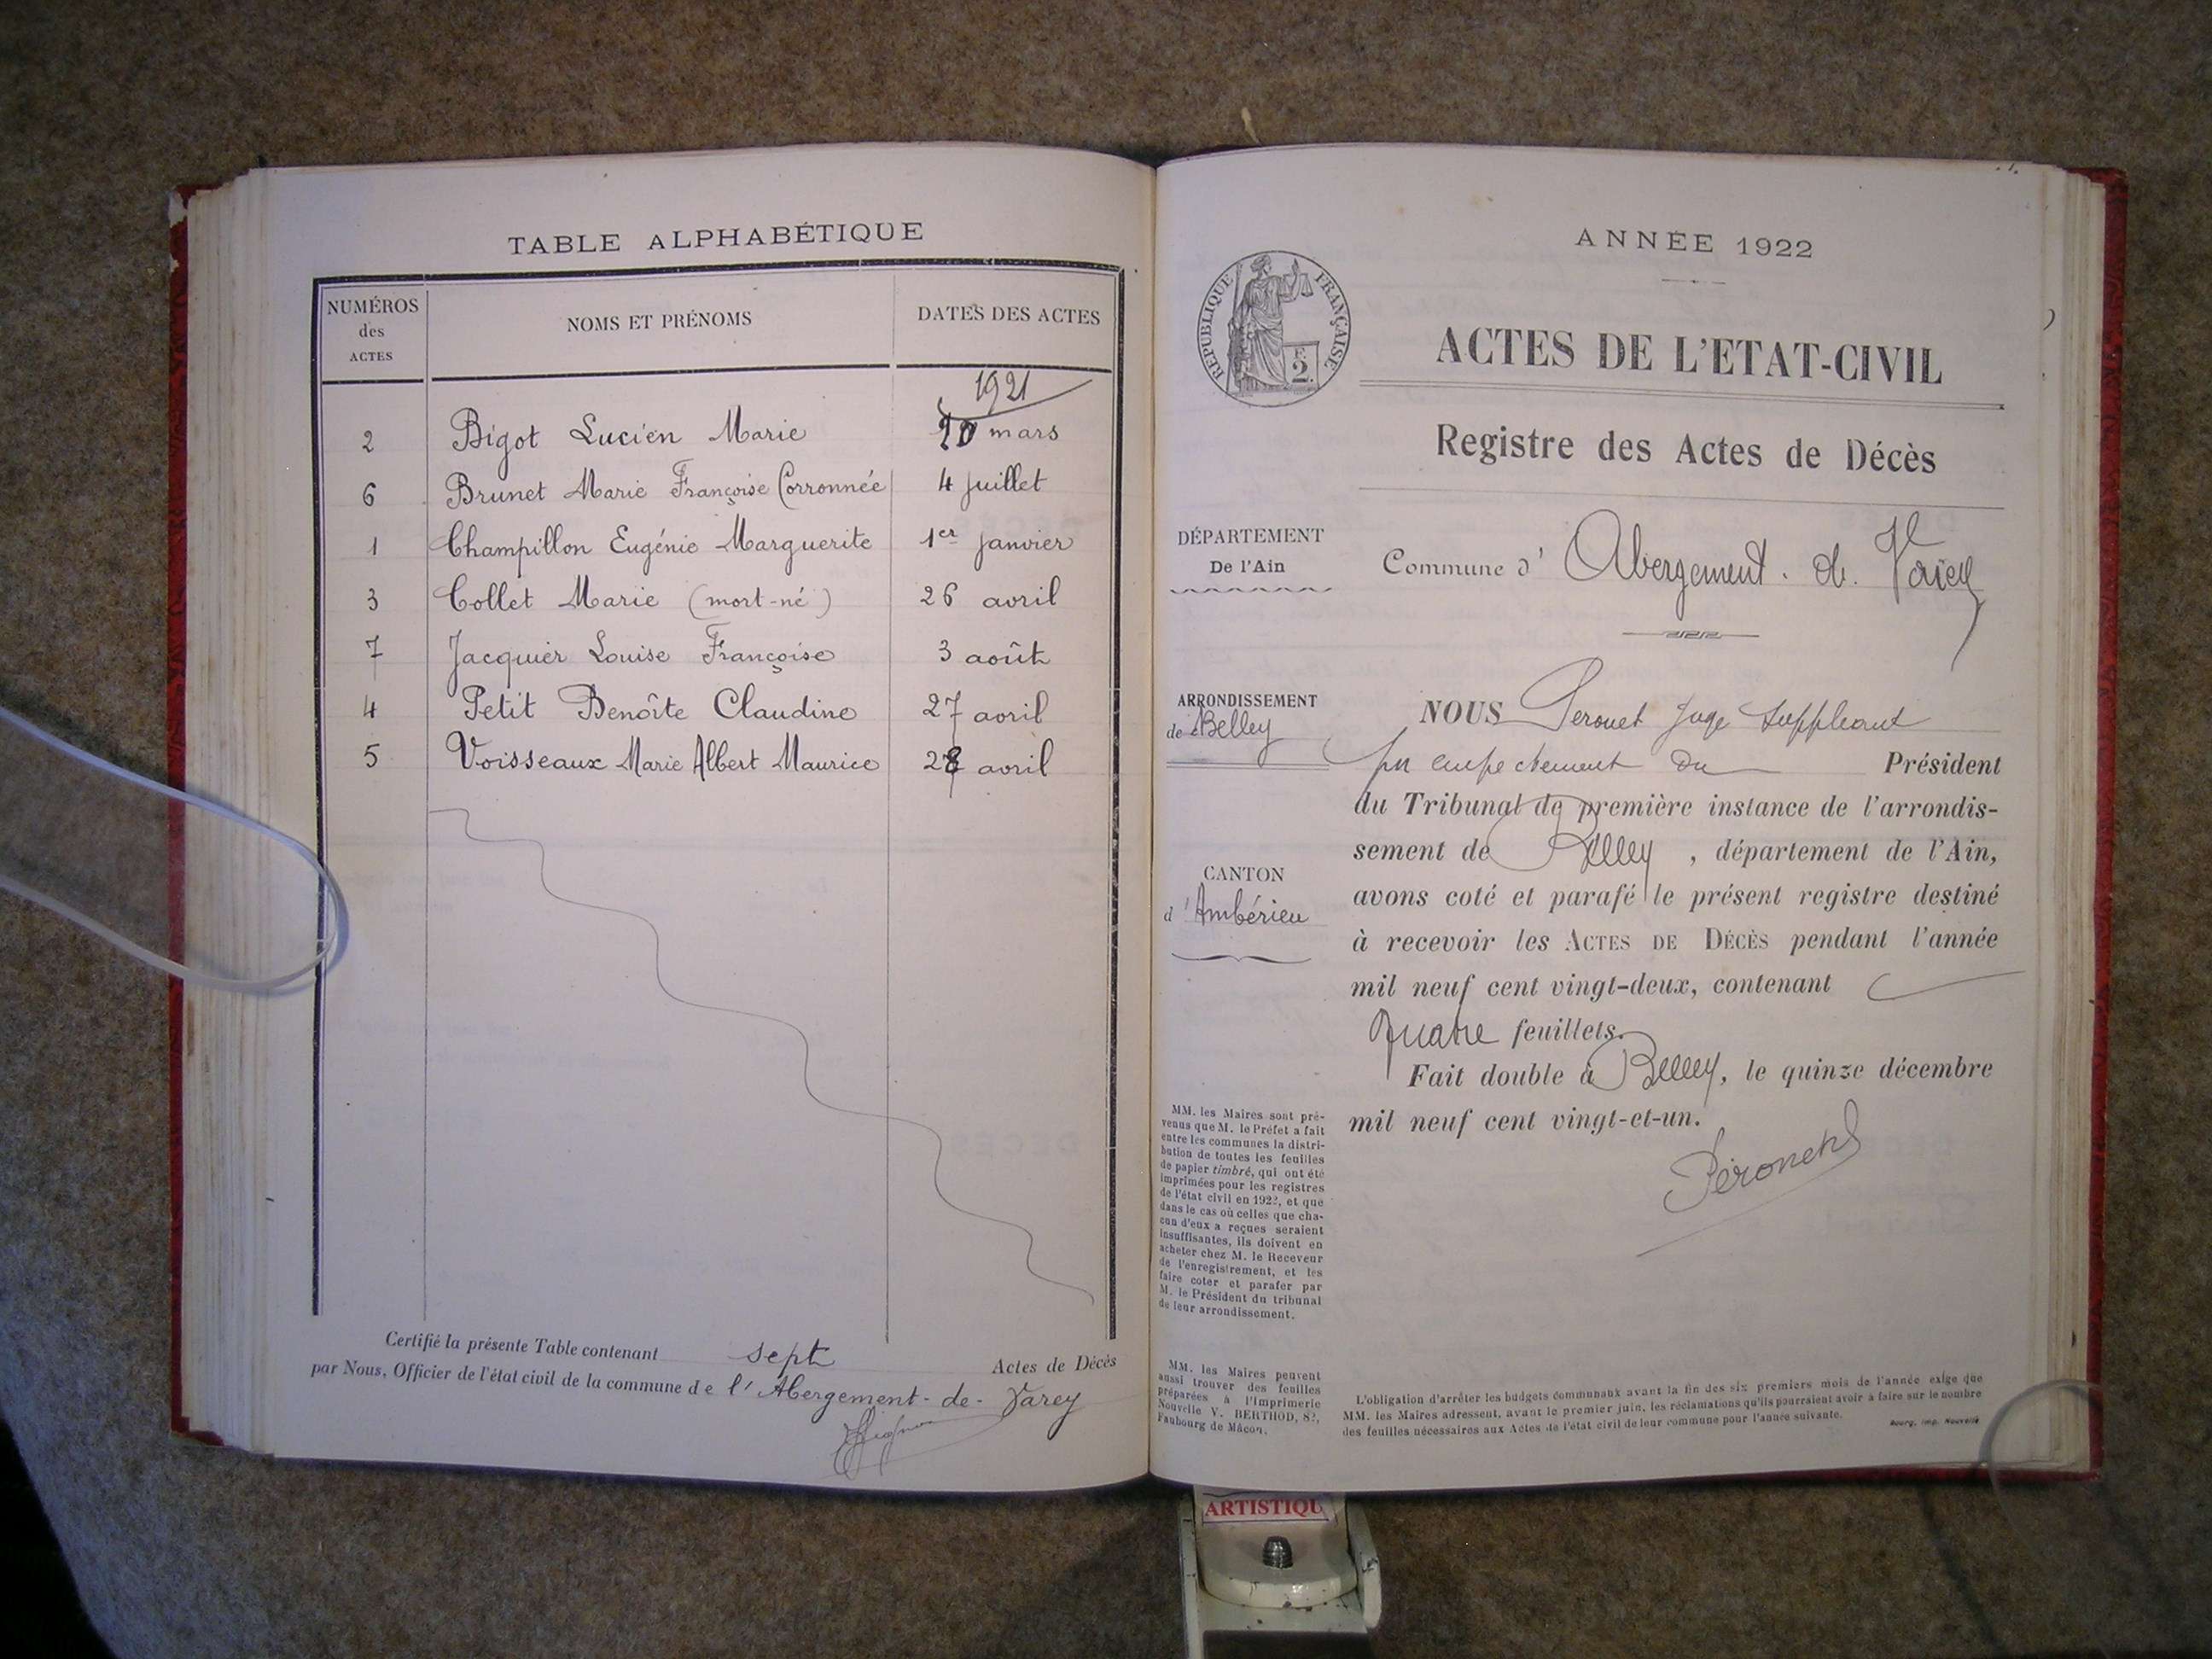 TABLE ALPHABÉTIQUE
NUMÉROS
des
ACTES
NOMS ET PRÉNOMS
DATES DES ACTES
1921
2 Bigot Lucien Marie mars
6 Brunet Marie Françoise Corronnée 4 juillet
1 Champillon Eugénie Marguerite 1er janvier
3 Collet Marie (mort-né) 26 avril
7 Jacquier Louise Françoise 3 août
4 Petit Benoîte Claudine 27 avril
5 Voisseaux Marie Albert Maurice 28 avril
Certifié la présente Table contenant sept Actes de Décès
par Nous, Officier de l'état civil de la commune de l'Abergement-de-Varey
ANNÉE 1922
RÉPUBLIQUE FRANÇAISE
2
ACTES DE L'ETAT-CIVIL
Registre des Actes de Décès
DÉPARTEMENT
De l'Ain
Commune d'Abergement. de. Varey
ARRONDISSEMENT
de Belley
CANTON
d'Ambérieu
NOUS Peronet Juge Suppleant
par empechement du Président
du Tribunal de première instance de l'arrondis-
sement de Belley, département de l'Ain,
avons coté et parafé le présent registre destiné
à recevoir les ACTES DE DÉCÈS pendant l'année
mil neuf cent vingt-deux, contenant
quatre feuillets.
Fait double à Belley, le quinze décembre
mil neuf cent vingt-et-un.
Péronet
MM. les Maires sont pré-
venus que M. le Préfet a fait
entre les communes la distri-
bution de toutes les feuilles
de papier timbré, qui ont été
imprimées pour les registres
de l'état civil en 1922, et que
dans le cas où celles que cha-
cun d'eux a reçues seraient
insuffisantes, ils doivent en
acheter chez M. le Receveur
de l'enregistrement, et les
faire coter et parafer par
M. le Président du tribunal
de leur arrondissement.
MM. les Maires peuvent
aussi trouver des feuilles
préparées à l'Imprimerie
Nouvelle V. BERTHOD, 82,
Faubourg de Mâcon.
L'obligation d'arrêter les budgets communaux avant la fin des six premiers mois de l'année exige que
MM. les Maires adressent, avant le premier juin, les réclamations qu'ils pourraient avoir à faire sur le nombre
des feuilles nécessaires aux Actes de l'état civil de leur commune pour l'année suivante.
Bourg, Imp. Nouvelle
ARTISTIQU